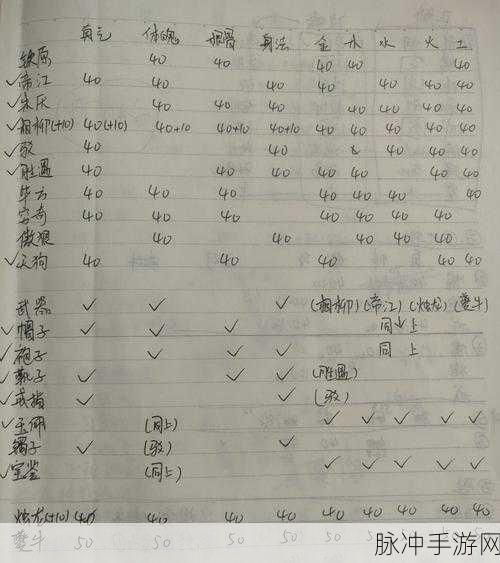 真气 体魄 根骨 身法 金 木 水 火 土
钦原 40 40 40 40 40
帝江 40 40 40 40 40 40 40 40
朱厌 40 40 40 40 40 40 40
相柳(+10) 40(+10) 40+10 40+10 40+10 40 40 40 40 40
驳 40 40 40 40 40
胜遇 40 40 40 40 40 40 40
毕方 40 40 40 40 40 40 40
40 40 40 40 40 40 40
傲狠 40 40 40 40 40
天狗 40 40 40 40 40
武器 ✓ ✓ ✓ (相柳) (帝江) (烛龙) (夔牛)
帽子 ✓ ✓ ✓ 同上
袍子 ✓ ✓ ✓ 同上
靴子 ✓ ✓ ✓ (胜遇)
戒指 ✓ ✓ (驳)
玉佩 (同上) ✓ ✓ ✓ ✓ ✓
镯子 ✓ (驳) ✓
宝鉴 (同上) ✓ ✓ ✓ ✓ ✓
烛龙(+10) 40 40 40 40 40 40 40 40 40
夔牛 50 50 50 50 50
脉冲手游网